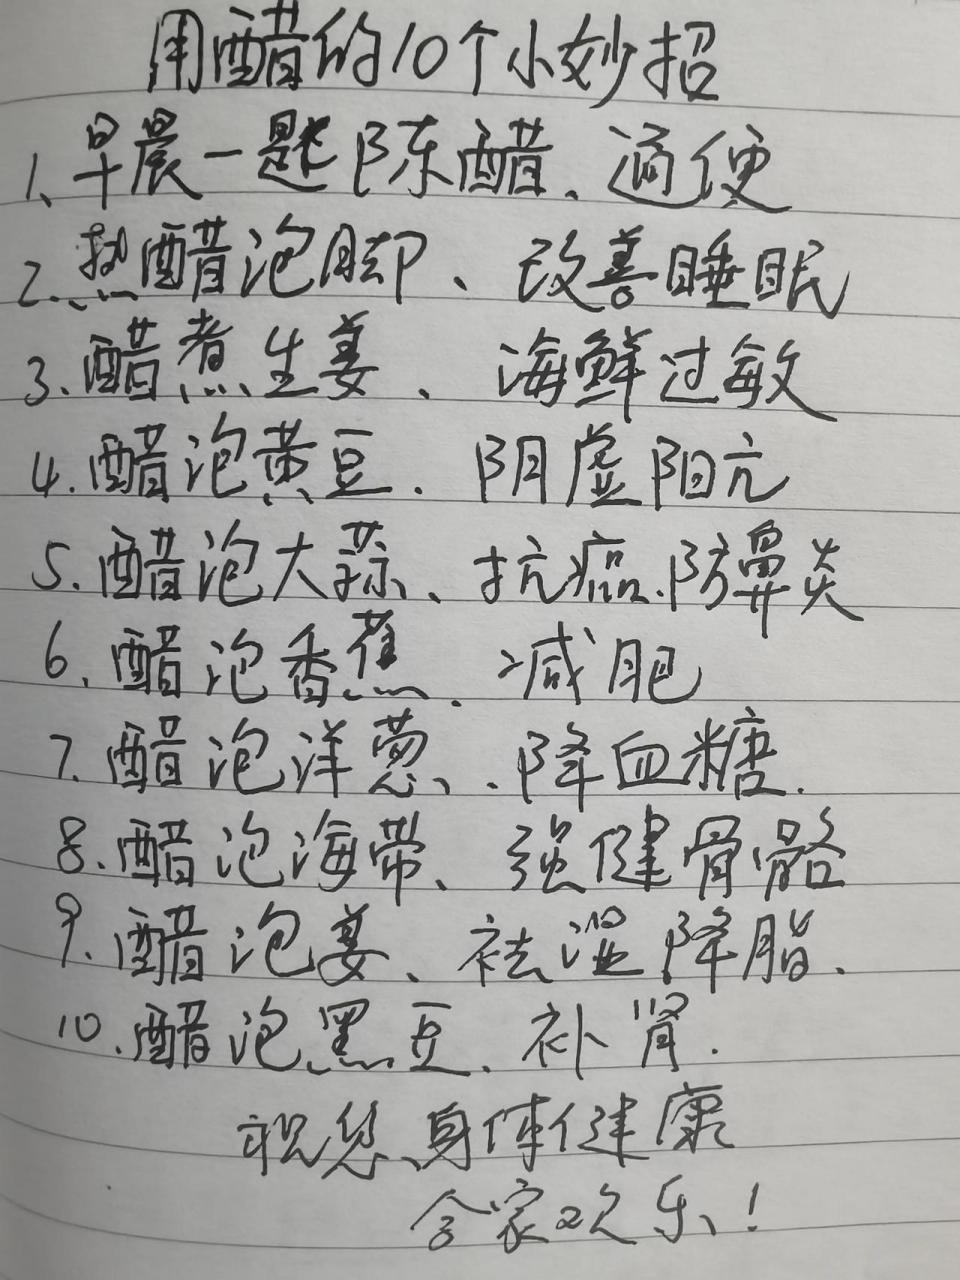 用醋的10个小妙招
1、早晨一匙陈醋、通便
2.热醋泡脚、改善睡眠
3.醋煮生姜、海鲜过敏
4.醋泡黄豆.阴虚阳亢
5.醋泡大蒜、抗癌.防鼻炎
6.醋泡香蕉、减肥
7.醋泡洋葱、.降血糖.
8.醋泡海带、强健骨骼
9.醋泡姜、祛湿降脂.
10.醋泡黑豆、补肾.
祝您身体健康
合家欢乐!